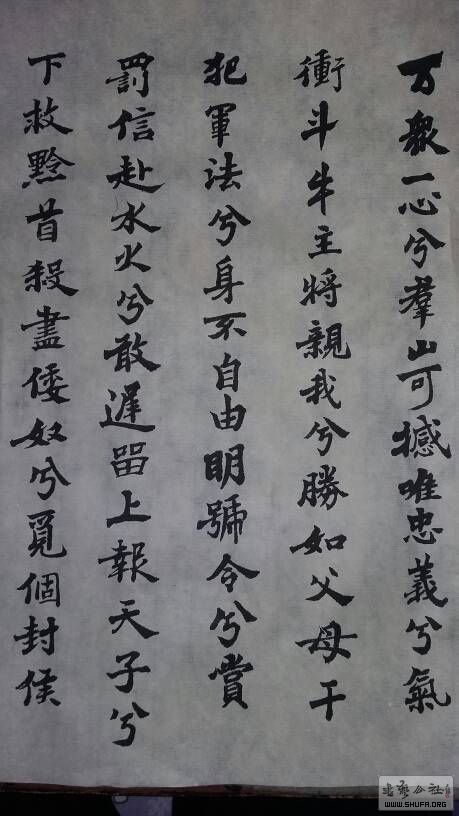 万衆一心兮羣山可撼唯忠義兮氣
衝斗牛主将親我兮勝如父母干
犯軍法兮身不自由明號令兮賞
罰信赴水火兮敢遲畱上報天子兮
下救黔首殺盡倭奴兮覓個封侯
WWW.SHUFA.ORG